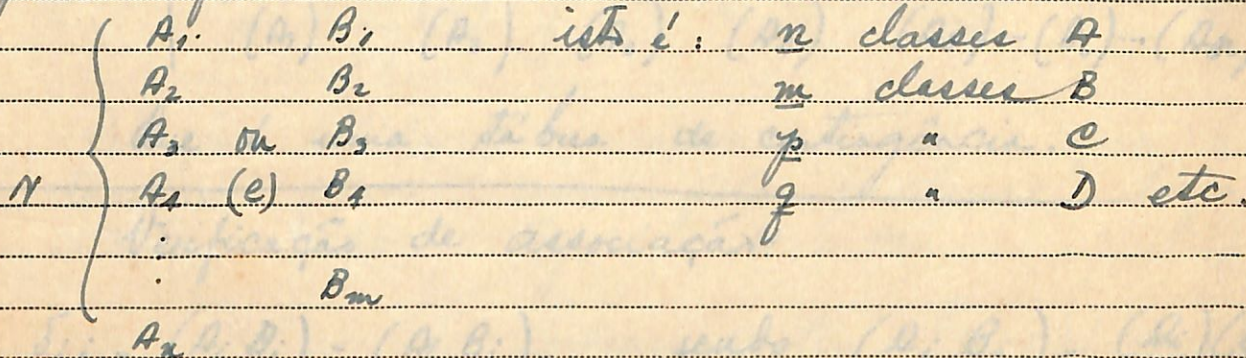 A₁. B₁ isto é: n classes A
A₂ B₂ m classes B
A₃ ou B₃ p " C
N A₄ (e) B₄ q " D etc.
⋮
Bₘ
Aₙ